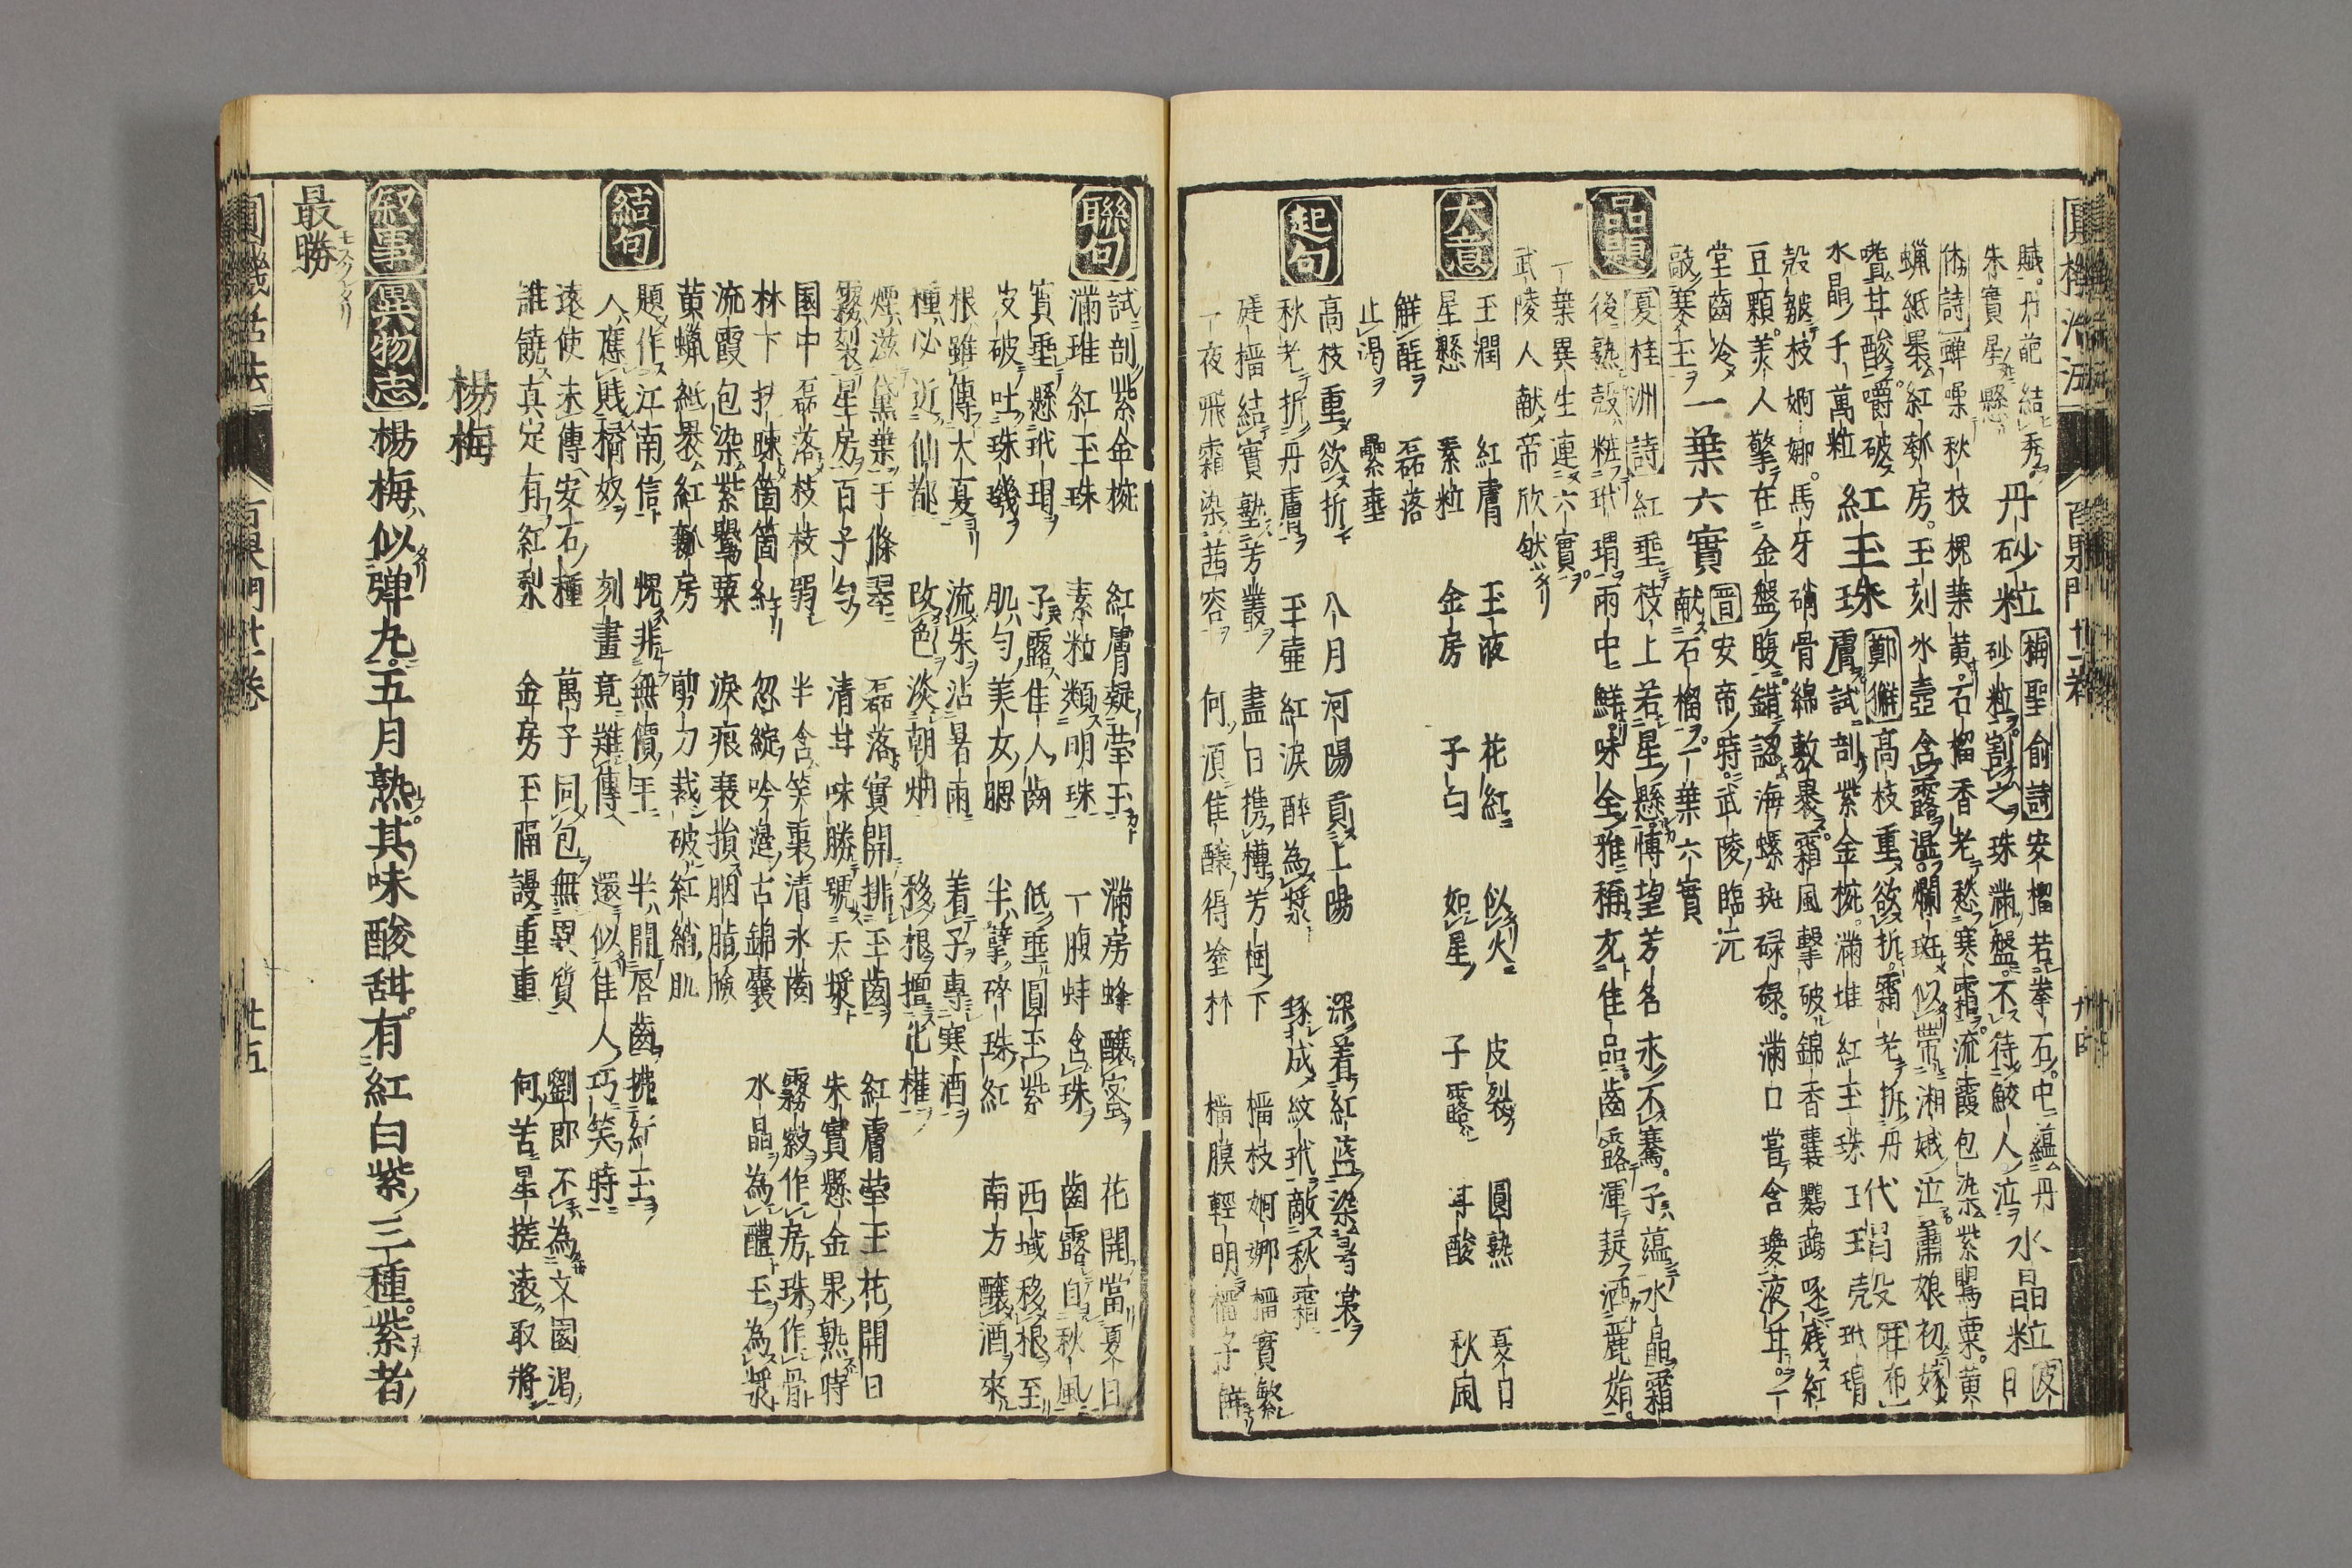 賦丹葩結秀 丹砂粒 梅聖俞詩 安榴若拳石中蘊丹 水晶粒 皮
朱實星懸 砂粒割之珠滿盤不待鮫人泣 日
休詩 蟬噪秋枝槐葉黃石榴香老愁寒霜流霞包染紫鸎粟黃
蝋紙裹紅瓠房玉刻氷壺含露濕斕斑似帶湘娥泣蕭娘初嫁
嗜甘酸嚼破 紅玉珠 鄭獬 高枝重欲折霜老拆丹
水晶千萬粒 膚試剖紫金椀滿堆紅玉珠 玉玉壳玳瑁
殼皺枝婀娜馬牙硝骨綿敷裹霜風擊破錦香囊鸚鵡啄殘紅
豆顆美人擎在金盤腹錯認海螺斑碌碌滿口嘗含瓊液甘一
堂齒冷 一葉六實 晋安帝時武陵臨沅
敲寒玉 献石榴一葉六實
品題 夏桂洲詩 紅垂枝上若星懸博望芳名永不騫子蘊水晶霜
後熟殼粧玳瑁雨中鮮味全雅稱充佳品齒露渾疑酒麗娟
一葉異生連六實
武陵人献帝欣然
大意 玉潤 紅膚 玉液 花紅 似火 皮裂 圓熟 夏日
星懸 素粒 金房 子白 如星 子露 甘酸 秋風
觧酲 磊落
止渴 纍垂
起句 高枝重欲折 八月河陽貢上陽 深着紅藍染暑裳
秋老折丹膚 玉壺紅淚醉為漿 琢成紋玳敵秋霜
媫榲結實塾芳叢 盡日携樽芳樹下 榲枝婀娜榲實繁
一夜飛霜染茜容 何湏佳釀得塗林 榲膜輕明榲子觧
聯句 試剖紫金椀 紅膚凝瑩玉 滿房蜂釀蜜 花開當夏日
滿堆紅玉珠 素粒類明珠 一腹蚌含珠 齒露自秋風
實垂懸玳瑁 子露佳人齒 低垂圓玉紫 西域移根至
皮破吐珠璣 肌勻美女腮 半擘碎珠紅 南方釀酒來
根雖傳大夏 流朱沾暑雨 着子專寒酒
種必近仙都 改色淡朝烟 移根擅化權
煙滋黛葉于條翠 磊落實開排玉齒 紅膚瑩玉花開日
霧裂星房百子勻 清甘味勝號天漿 朱實懸金果熟時
園中磊落枝枝弱 半含笑裏清氷齒 霧縠作房珠作骨
林下扶疎箇箇紅 忽綻吟邊古錦囊 水晶為醴玉為漿
流霞包染紫鸎粟 淚痕裛損胭脂臉
黃蠟紙裹紅瓠房 剪刀裁破紅綃肌
結句 題作江南信 愧非無價年 半開唇齒 拂紅玉
人應賤橘奴 刻畫竟難傳 還似佳人巧笑時
遠使未傳安石種 萬子同包無異質 劉郎不為文園渴
誰饒真定有紅梨 金房玉隔謾重重 何苦星搓遠取將
楊梅
叙事 異物志 楊梅似彈丸五月熟其味酸甜有紅白紫三種紫者
最勝
圓機活法 百果門廿一卷 廿五